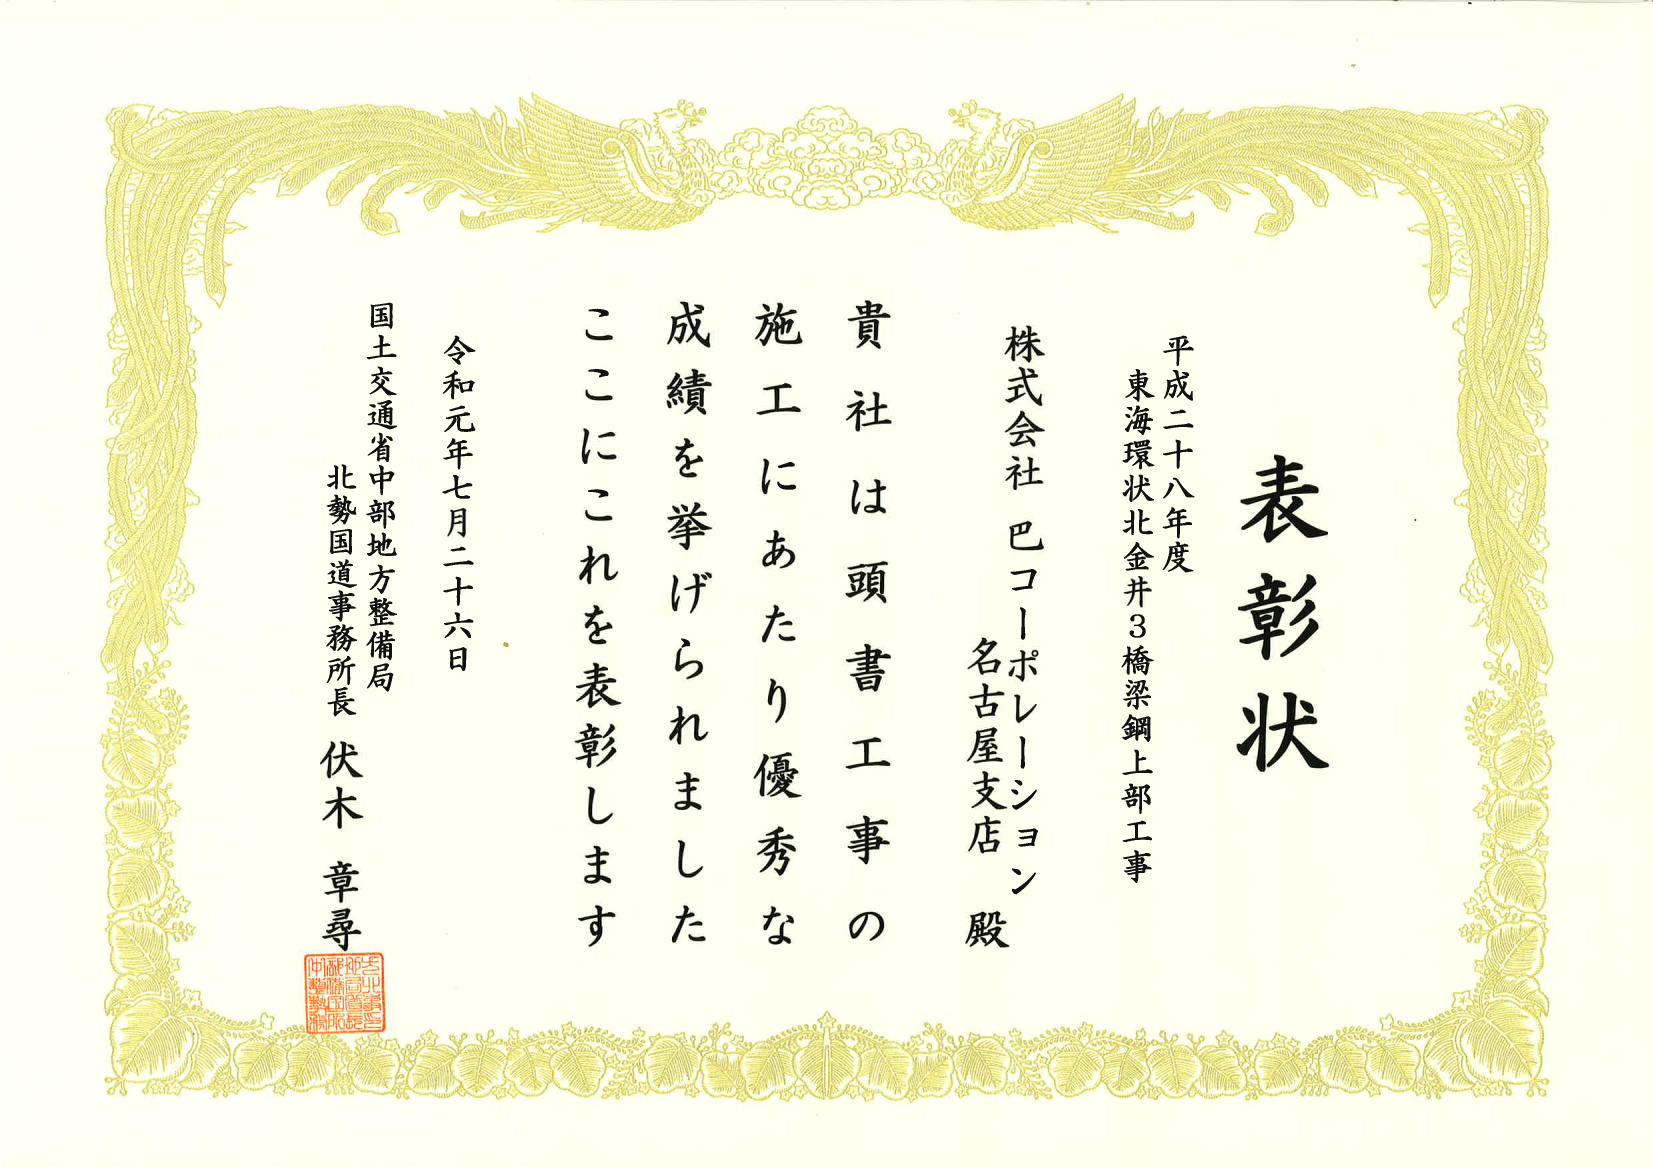 表彰状
平成二十八年度
東海環状北金井３橋梁鋼上部工事
株式会社 巴コーポレーション
名古屋支店 殿
貴社は頭書工事の
施工にあたり優秀な
成績を挙げられました
ここにこれを表彰します
令和元年七月二十六日
国土交通省中部地方整備局
北勢国道事務所長 伏木 章尋